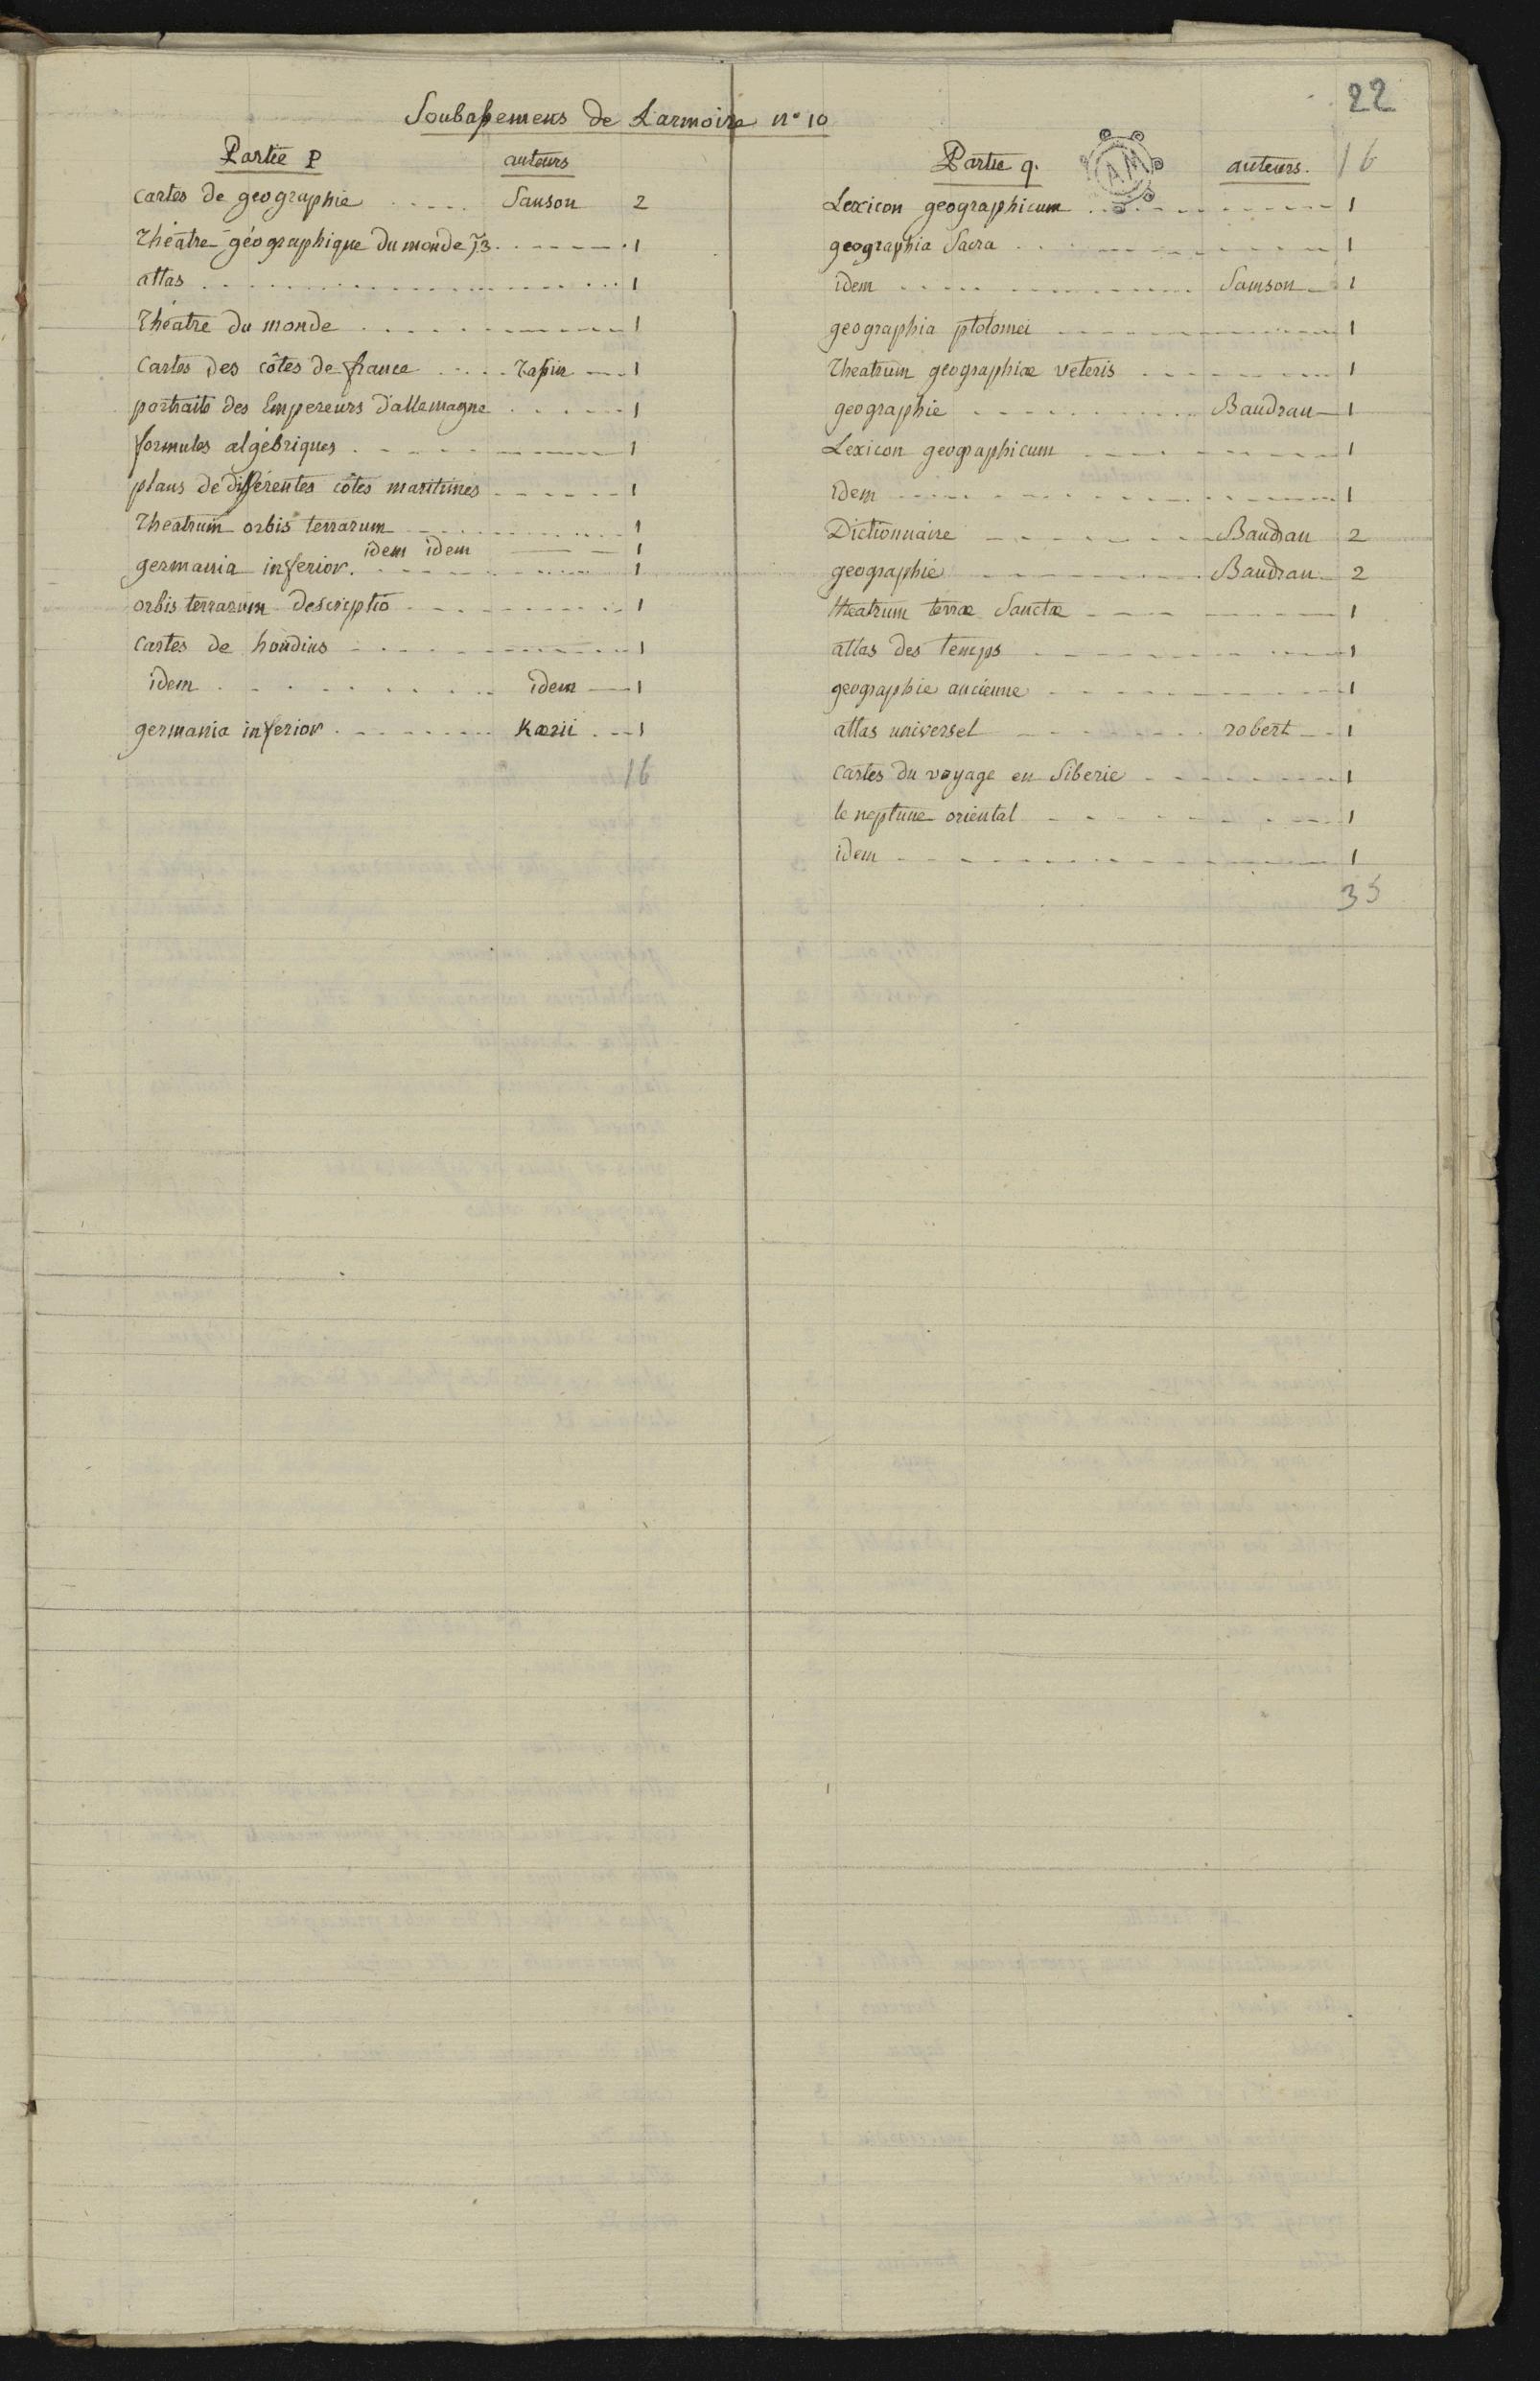 22
Soubassemens de L'armoire n° 10
Partie P auteurs
cartes de geographie Sanson 2
Théatre géographique du monde T3 1
atlas 1
Théatre du monde 1
Cartes des côtes de france Tassin 1
portraits des Empereurs d'allemagne 1
formules algébriques 1
plans de différentes côtes maritimes 1
Theatrum orbis terrarum 1
idem idem 1
germania inferior 1
orbis terrarum descriptio 1
cartes de hondius 1
idem idem 1
germania inferior Kærii 1
16
Partie q. auteurs. 16
AM
Lexicon geographicum 1
geographia Sacra 1
idem Samson 1
geographia ptolomei 1
Theatrum geographiæ veteris 1
geographie Baudran 1
Lexicon geographicum 1
idem 1
Dictionnaire Baudran 2
geographie Baudran 2
theatrum terræ Sanctæ 1
atlas des temps 1
geographie ancienne 1
atlas universel robert 1
cartes du voyage en Siberie 1
le neptune oriental 1
idem 1
35